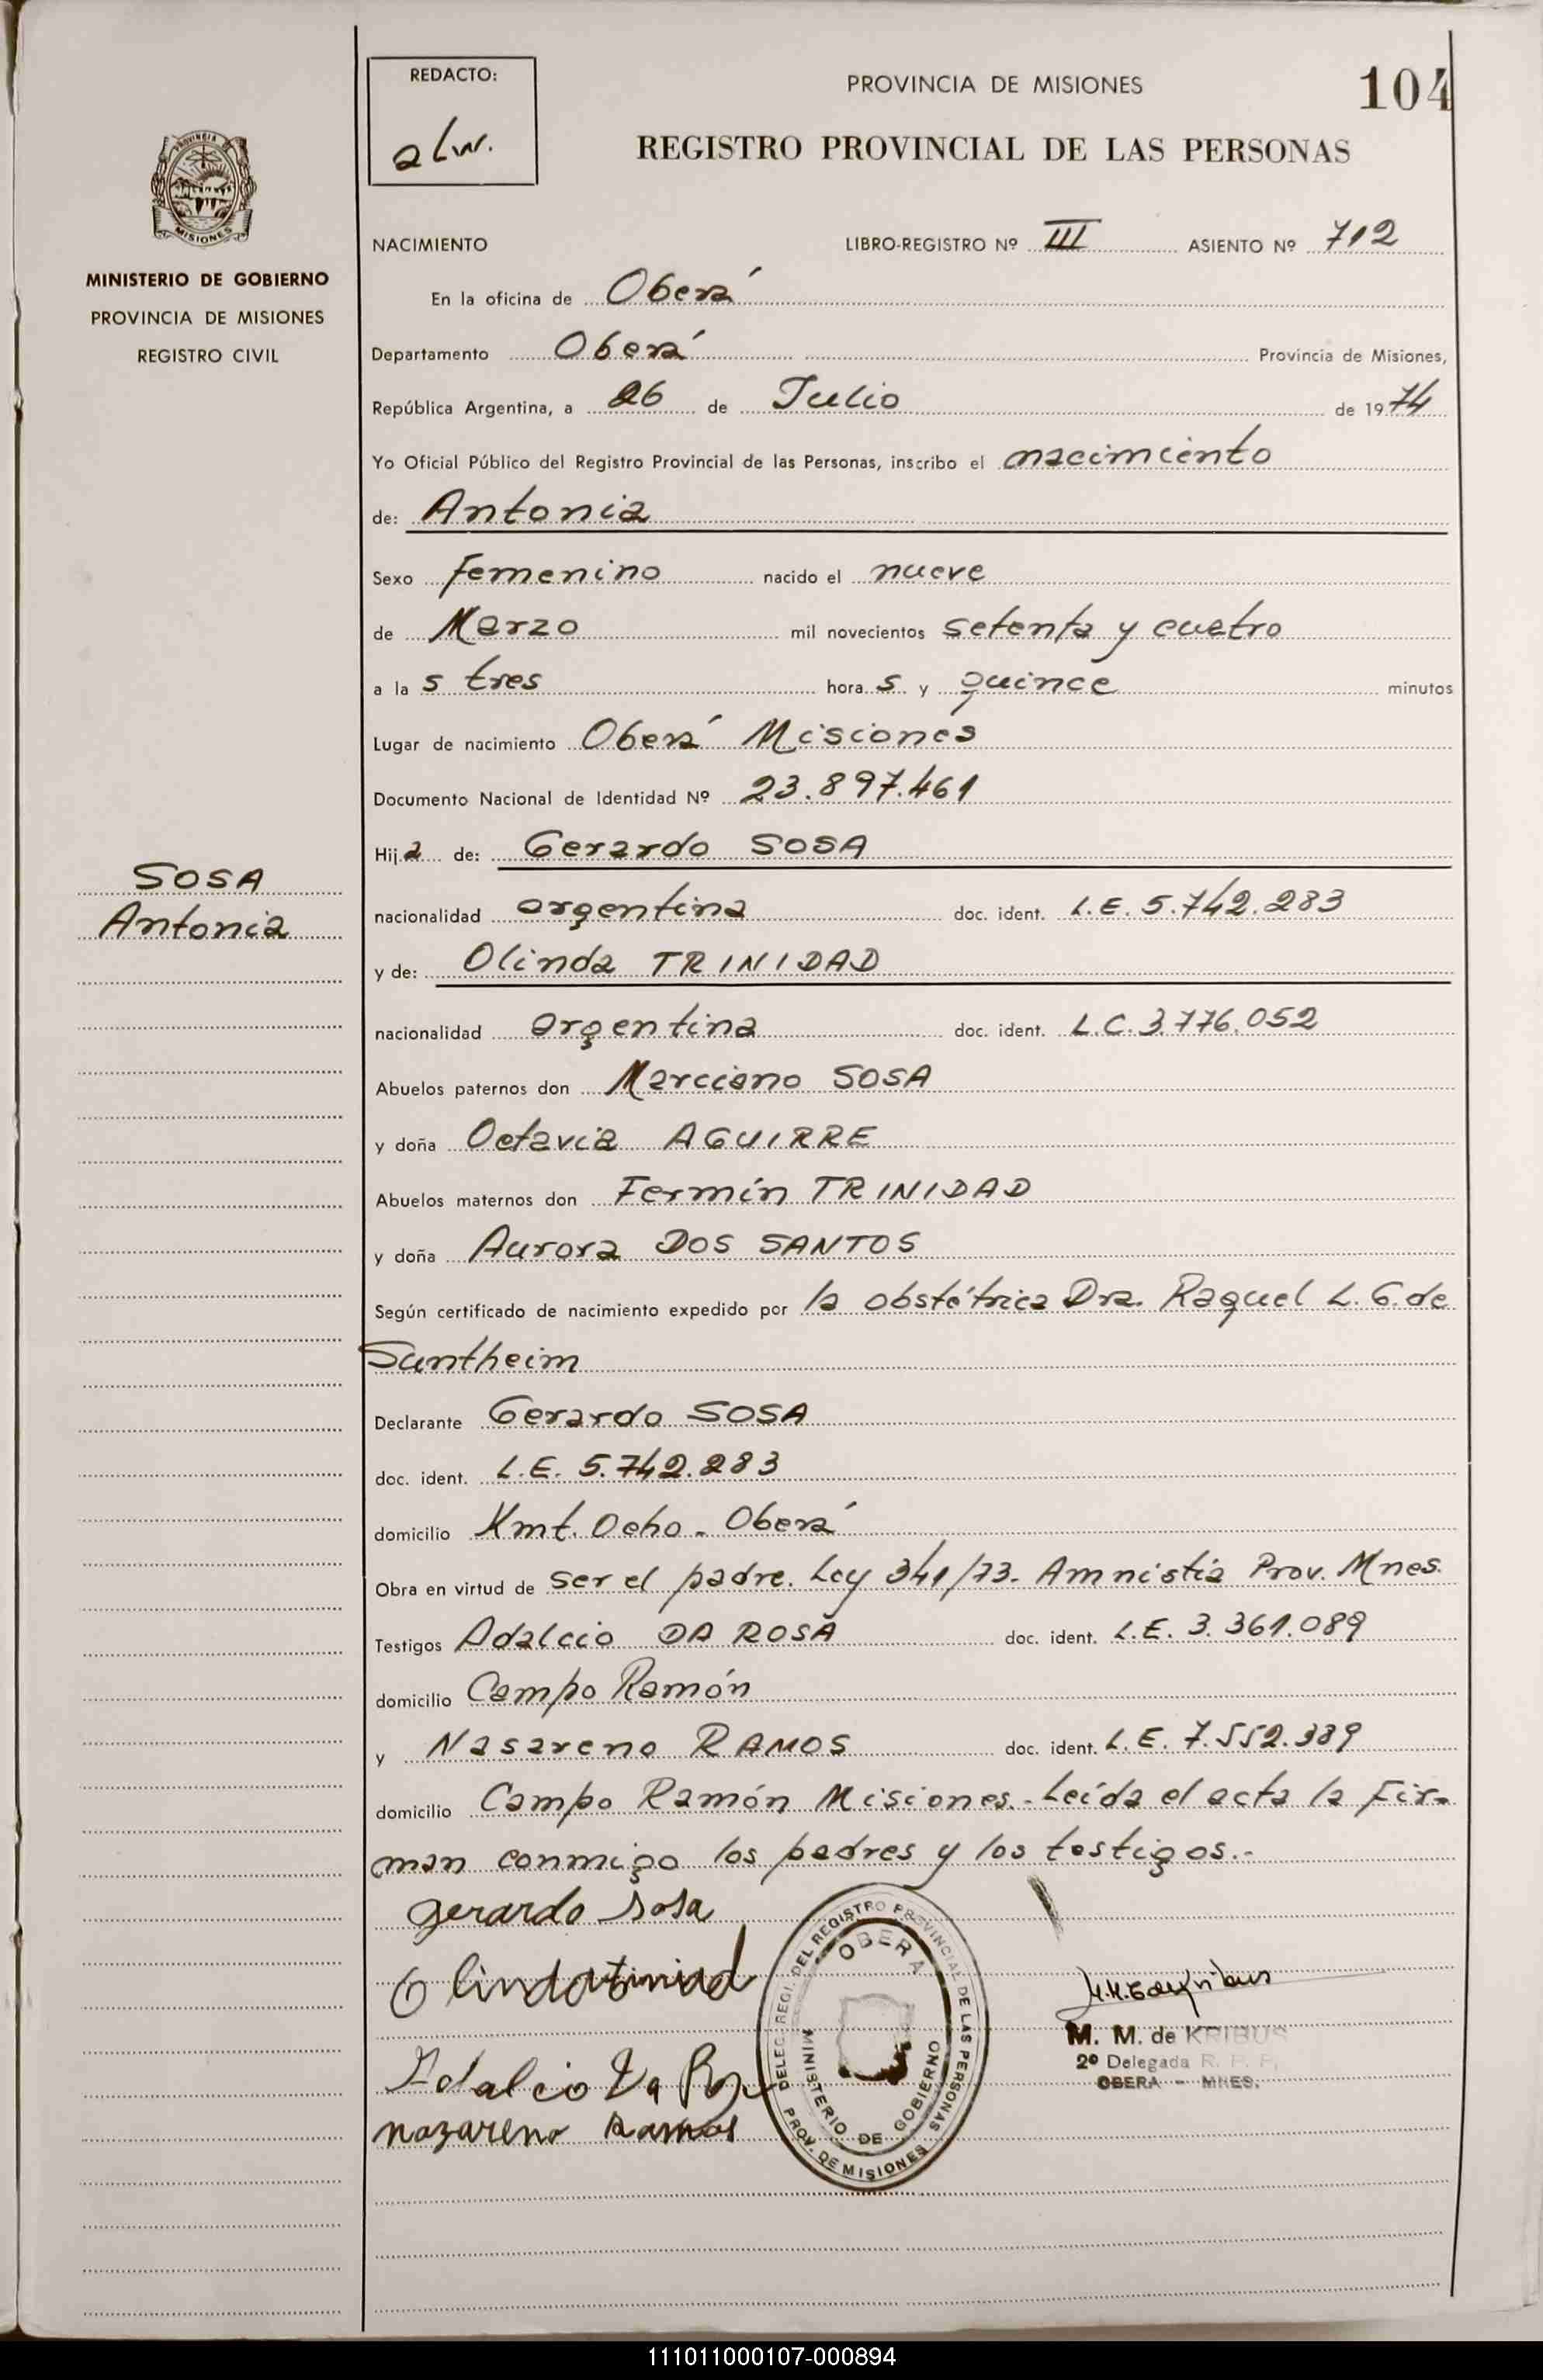 REDACTO:
PROVINCIA DE MISIONES
104
REGISTRO PROVINCIAL DE LAS PERSONAS
PROVINCIA DE
MISIONES
MINISTERIO DE GOBIERNO
PROVINCIA DE MISIONES
REGISTRO CIVIL
NACIMIENTO LIBRO-REGISTRO Nº III ASIENTO Nº 712
En la oficina de Oberá
Departamento Oberá Provincia de Misiones,
República Argentina, a 26 de Julio de 1974
Yo Oficial Público del Registro Provincial de las Personas, inscribo el nacimiento
de: Antonia
Sexo Femenino nacido el nueve
de Marzo mil novecientos setenta y cuatro
a la s tres hora s y quince minutos
Lugar de nacimiento Oberá Misiones
Documento Nacional de Identidad Nº 23.897.461
Hija de: Gerardo SOSA
SOSA
Antonia
nacionalidad argentina doc. ident. L.E. 5.742.283
y de: Olinda TRINIDAD
nacionalidad argentina doc. ident. L.C. 3.776.052
Abuelos paternos don Marciano SOSA
y doña Octavia AGUIRRE
Abuelos maternos don Fermín TRINIDAD
y doña Aurora DOS SANTOS
Según certificado de nacimiento expedido por la obstétrica Dra. Raquel L. G. de
Suntheim
Declarante Gerardo SOSA
doc. ident. L.E. 5.742.283
domicilio Kmt. Ocho - Oberá
Obra en virtud de ser el padre. Ley 341/73. Amnistia Prov. Mnes.
Testigos Adalcio DA ROSA doc. ident. L.E. 3.361.089
domicilio Campo Ramón
y Nasareno RAMOS doc. ident. L.E. 7.552.389
domicilio Campo Ramón Misiones.- Leída el acta la Fir-
man conmigo los padres y los testigos.-
gerardo Sosa
Olinda
Adalcio Da
nazareno Ramos
DELEG. REGI. DEL REGISTRO PROVINCIAL DE LAS PERSONAS
OBERA
MINISTERIO DE GOBIERNO
PROV. DE MISIONES
M. M. de KRIBUS
2º Delegada R. P. P.
OBERA - MNES.
111011000107-000894